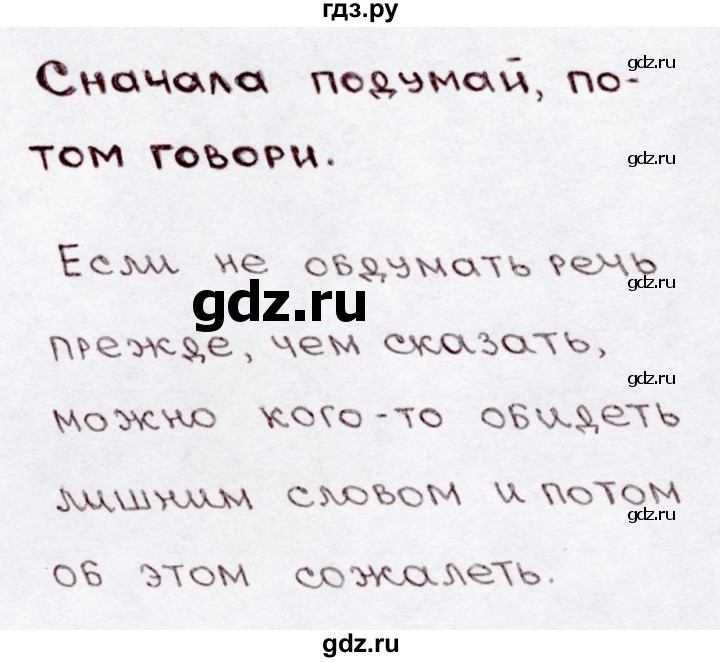 гдз.ру
Сначала подумай, по-
gdz.ru
том говори.
gdz.ru
Если не обдумать речь
gdz.ru
gdz.ru
прежде, чем сказать,
gdz.ru
можно кого-то обидеть
лишним словом и потом
gdz.ru
об этом сожалеть.
gdz.ru